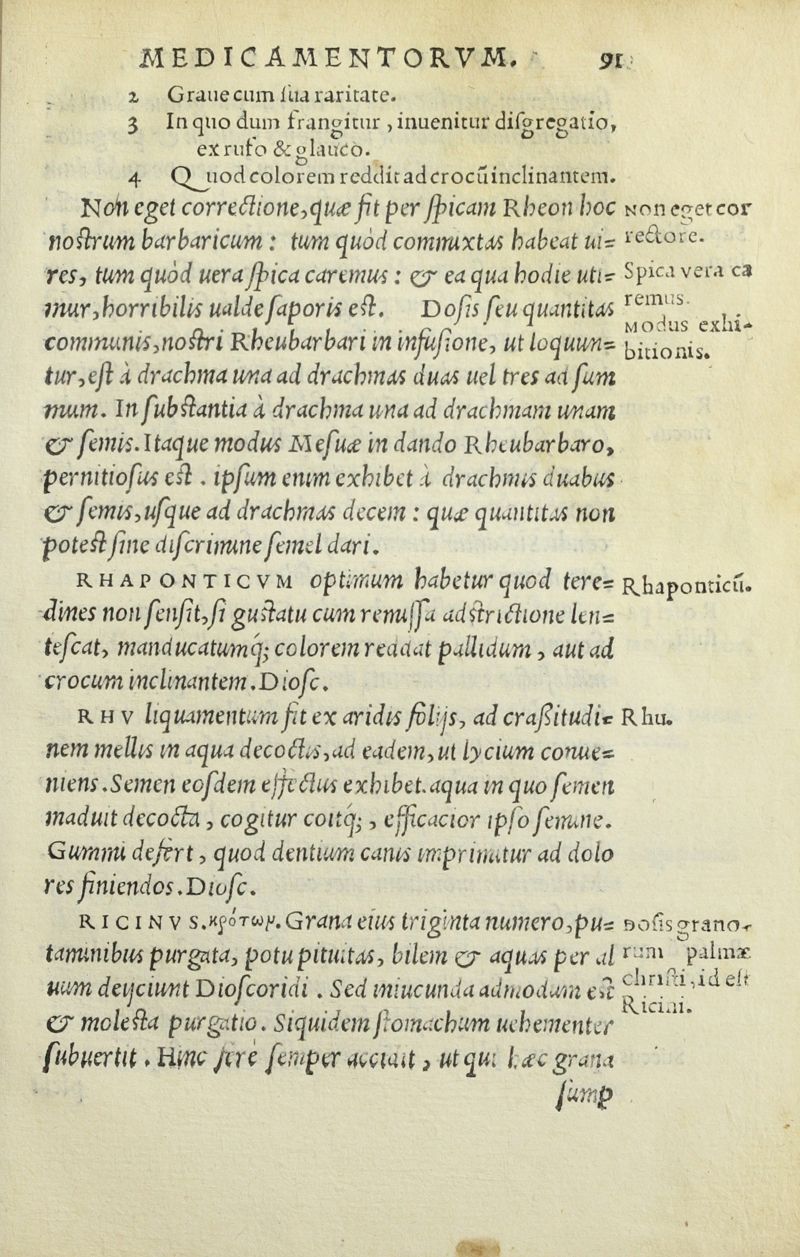 MEDICAMENTORVM. 91
2 Graue cum sua raritate.
3 In quo dum frangitur, inuenitur disgregatio,
ex rufo & glauco.
4 Quod colorem reddit ad crocũ inclinantem.
Non eget correctione, quæ fit per spicam Rheon hoc
nostrum barbaricum: tum quòd commixtas habeat ui=
res, tum quòd uera spica caremus: & ea qua hodie uti=
mur, horribilis ualde saporis est. Dosis seu quantitas
communis, nostri Rheubarbari in infusione, ut loquun=
tur, est à drachma una ad drachmas duas uel tres ad sum
mum. In substantia à drachma una ad drachmam unam
& semis. Itaque modus Mesuæ in dando Rheubarbaro,
pernitiosus est. ipsum enim exhibet à drachmis duabus
& semis, usque ad drachmas decem: quæ quantitas non
potest sine discrimine semel dari.
RHAPONTICVM optimum habetur quod tere=
dines non sensit, si gustatu cum remissa adstrictione len=
tescat, manducatumq; colorem reddat pallidum, aut ad
crocum inclinantem. Diosc.
RHV liquamentum fit ex aridis folijs, ad craßitudi=
nem mellis in aqua decoctis, ad eadem, ut lycium conue=
niens. Semen eosdem effectus exhibet. aqua in quo semen
maduit decocta, cogitur coitq;, efficacior ipso semine.
Gummi defert, quod dentium cauis imprimitur ad dolo
res finiendos. Diosc.
RICINVS. κρότων. Grana eius triginta numero, pu=
taminibus purgata, potu pituitas, bilem & aquas per al
uum deijciunt Dioscoridi. Sed iniucunda admodum est
& molesta purgatio. Siquidem stomachum uehementer
subuertit. Hinc ferè semper accidit, ut qui hæc grana
sump
Non eget cor
rectore.
Spica vera ca
remus.
Modus exhi-
bitionis.
Rhaponticũ.
Rhu.
Dosis grano-
rum palmæ
christi, id est
Ricini.